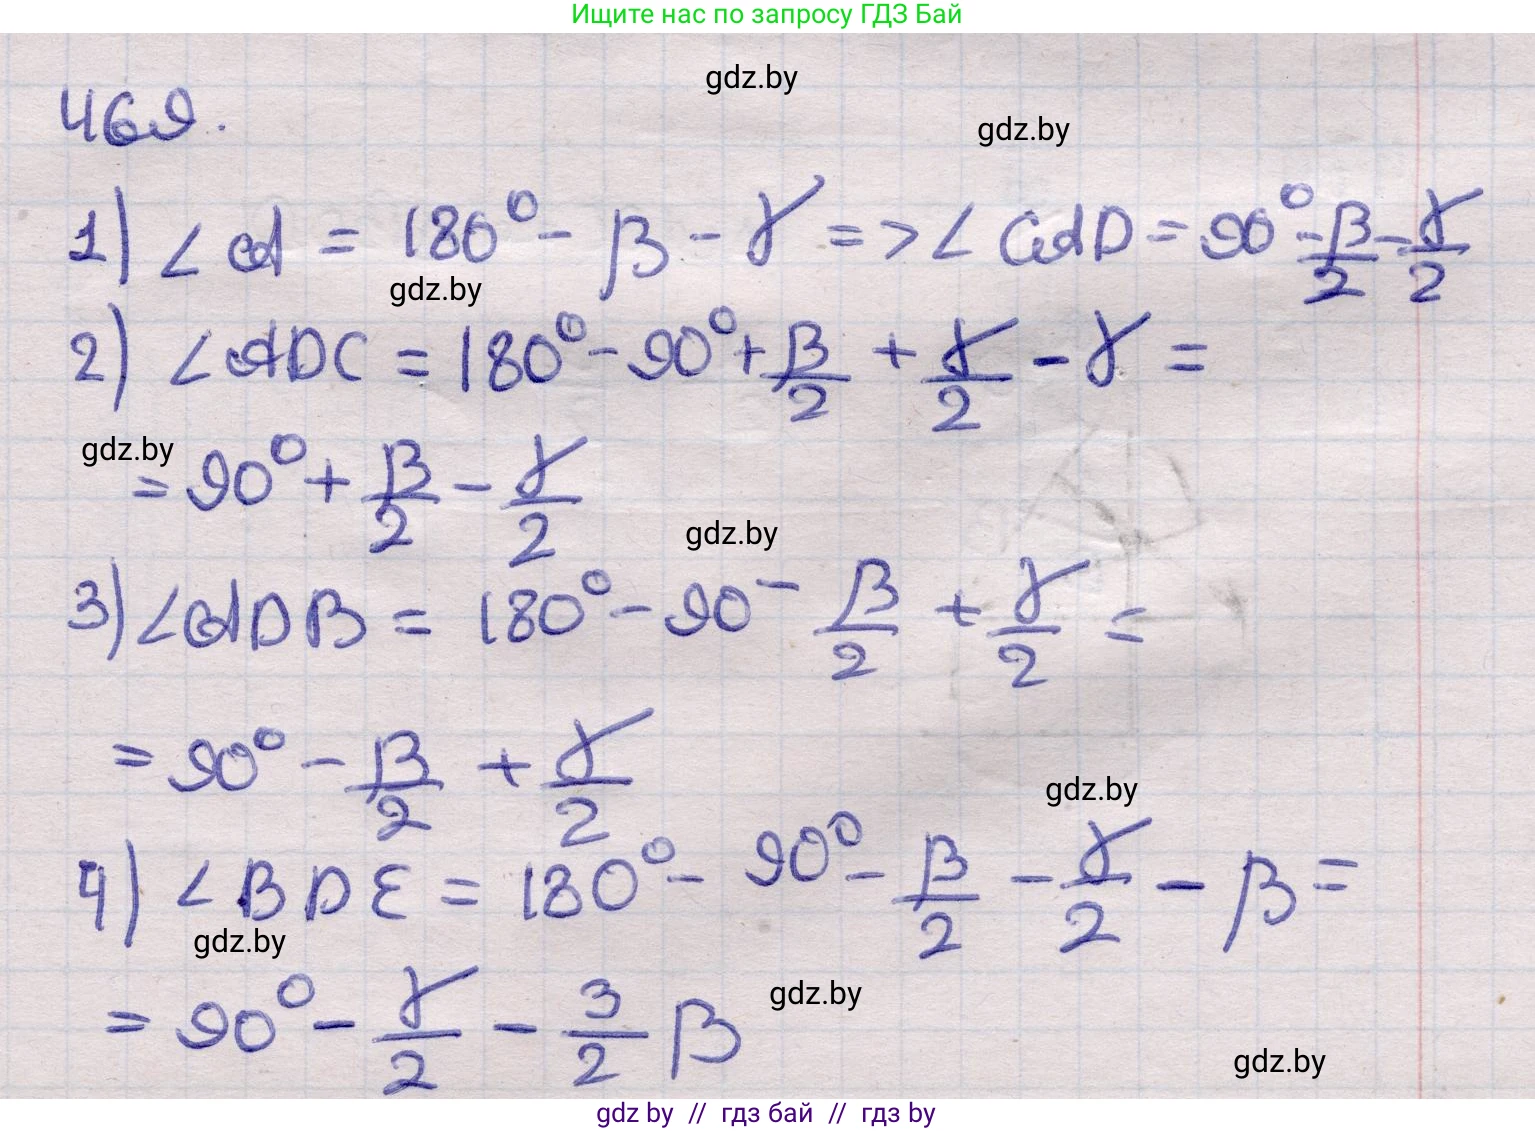 Ищите нас по запросу ГДЗ Бай
gdz.by
469.
gdz.by
1) ∠A = 180° - β - γ => ∠CAD = 90° - β/2 - γ/2
gdz.by
2) ∠ADC = 180° - 90° + β/2 + γ/2 - γ =
gdz.by
= 90° + β/2 - γ/2
gdz.by
3) ∠ADB = 180° - 90 - β/2 + γ/2 =
= 90° - β/2 + γ/2
gdz.by
4) ∠BDE = 180° - 90° - β/2 - γ/2 - β =
gdz.by
= 90° - γ/2 - 3/2 β
gdz.by
gdz.by
gdz by // гдз бай // гдз by